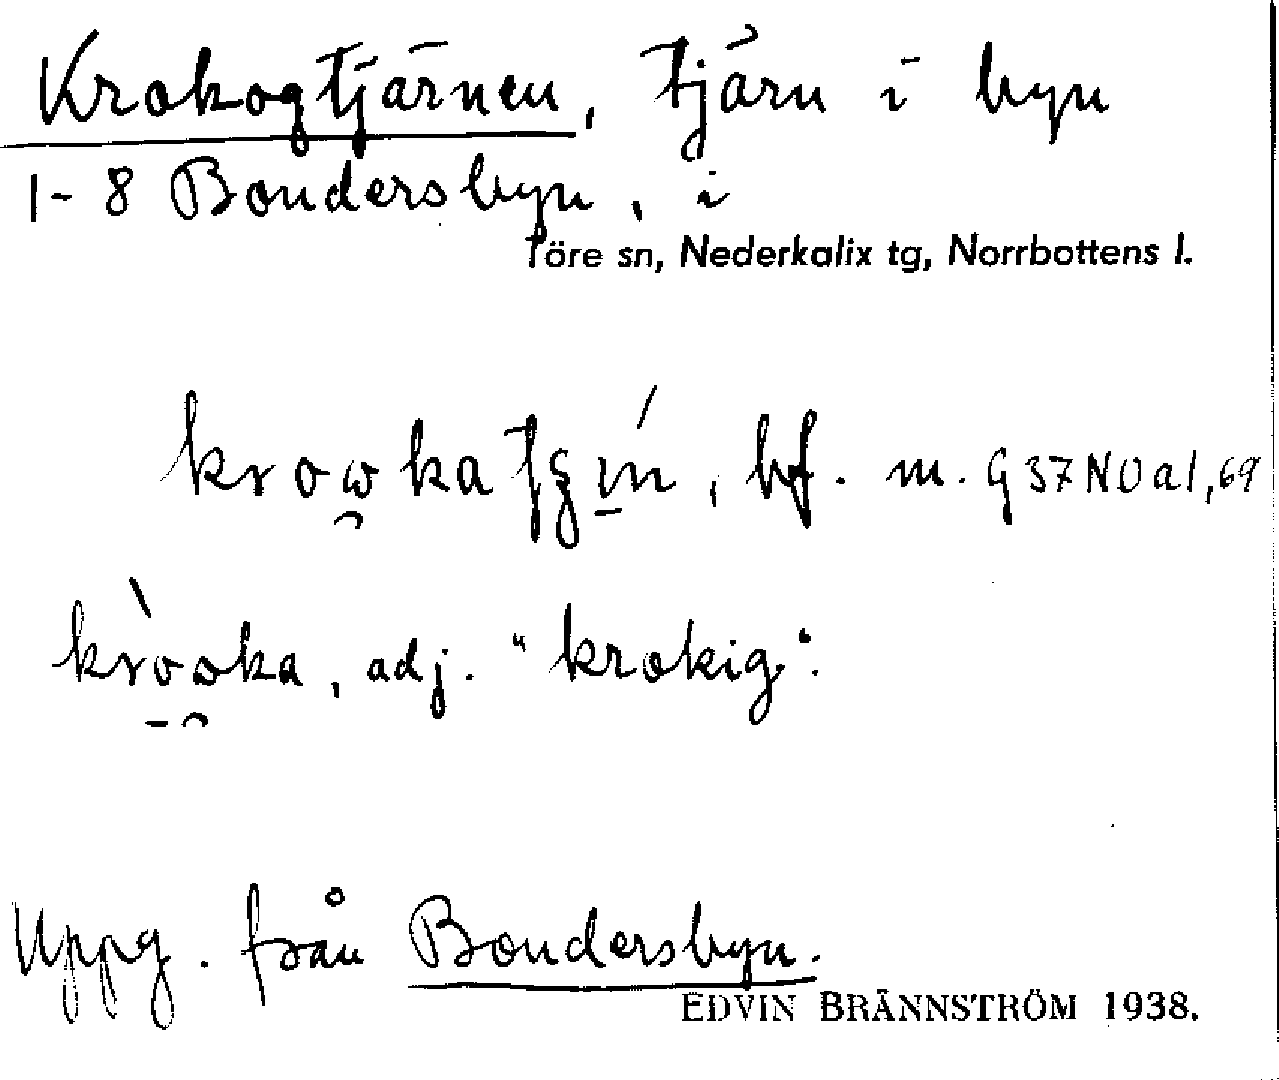 Krokogtjärnen, tjärn i byn
1-8 Bondersbyn, i
Töre sn, Nederkalix tg, Norrbottens l.
bf. m. G37NOal,69
adj. "krokig".
Uppg. från Bondersbyn.
EDVIN BRÄNNSTRÖM 1938.